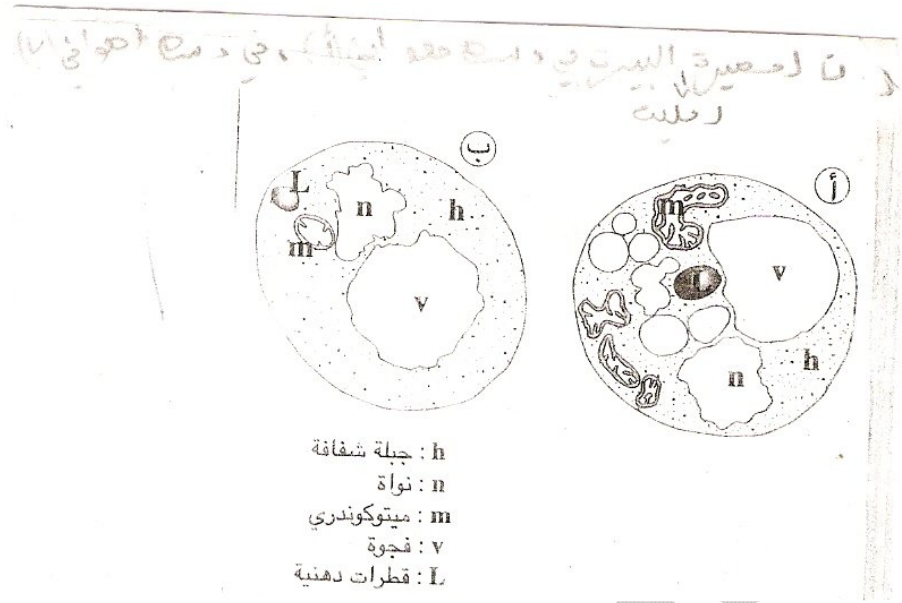 في وسط
ب
أ
L
n
h
m
m
v
v
L
h
n
h : جبلة شفافة
n : نواة
m : ميتوكوندري
v : فجوة
L : قطرات دهنية